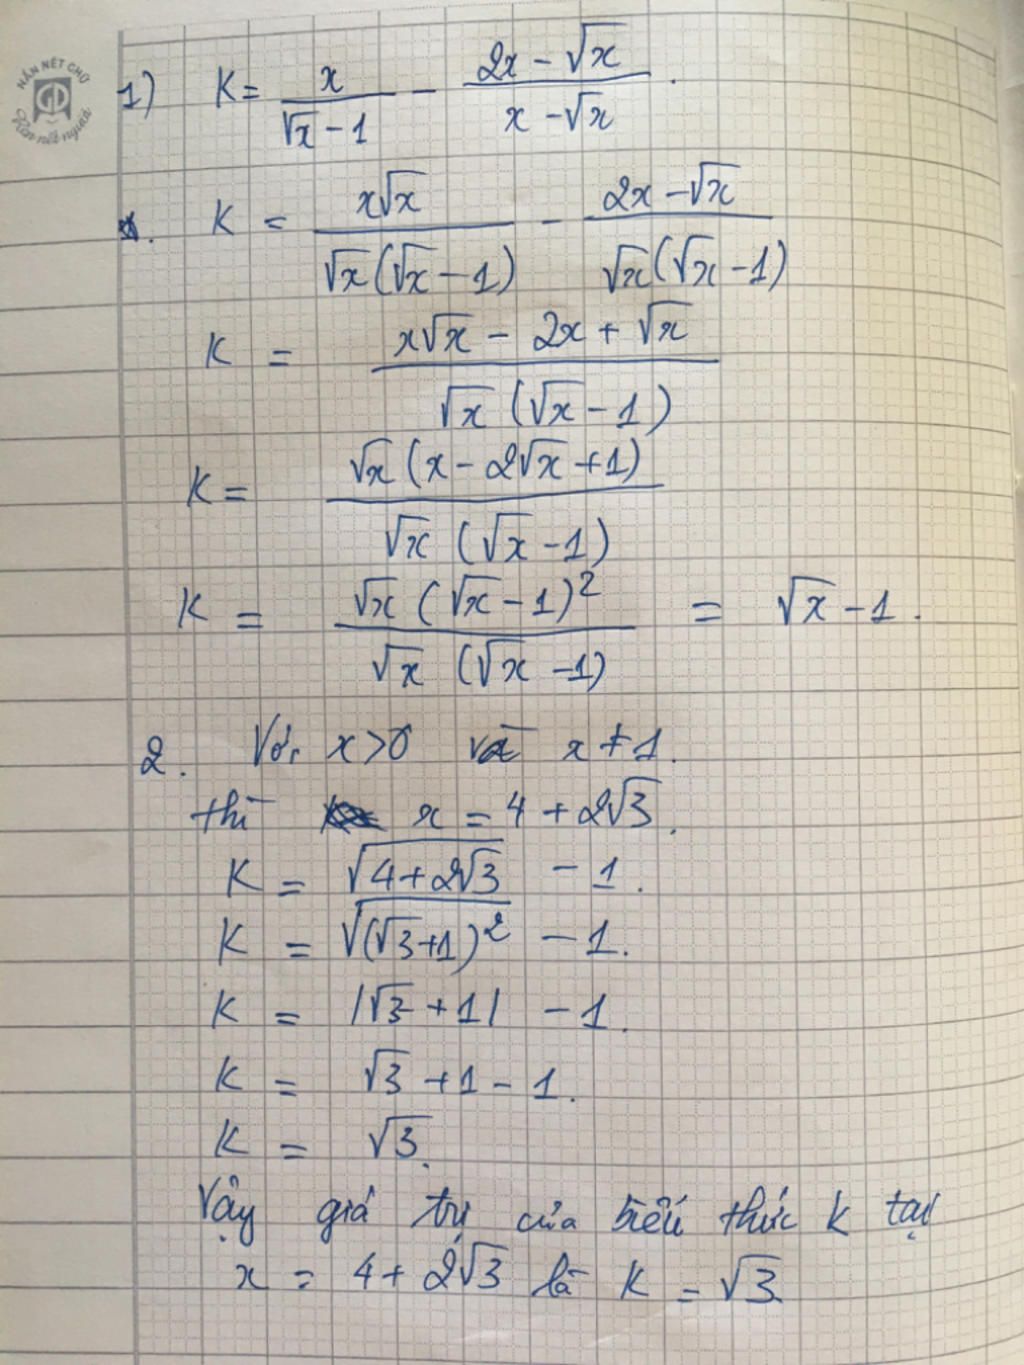 NẮN NÉT CHỮ
GD
Rèn nết người
1) K = x/(√x - 1) - (2x - √x)/(x - √x).
K = x√x/(√x(√x - 1)) - (2x - √x)/(√x(√x - 1))
K = (x√x - 2x + √x)/(√x (√x - 1))
K = (√x (x - 2√x + 1))/(√x (√x - 1))
K = (√x (√x - 1)²)/(√x (√x - 1)) = √x - 1.
2. Với x > 0 và x ≠ 1.
thì x = 4 + 2√3.
K = √(4 + 2√3) - 1.
K = √((√3 + 1)²) - 1.
K = |√3 + 1| - 1.
K = √3 + 1 - 1.
K = √3.
Vậy giá trị của biểu thức K tại
x = 4 + 2√3 là K = √3